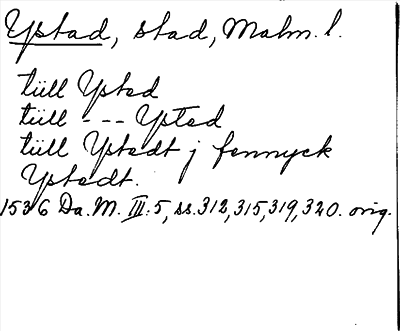 Ystad, stad, Malm. l.
tiill Ysted
tiill - - - Ysted
tiill Ystedt j fennyck
Ystedt.
1536 Da. M. III: 5, ss. 312, 315, 319, 320. orig.